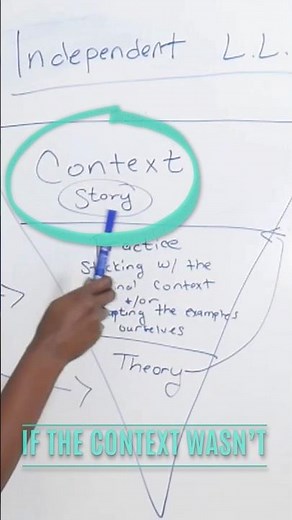 Independent L.L.
Context
Story
actice
w/ the
Context
+/or
pting the examples
ourselves
Theory
IF THE CONTEXT WASN'T